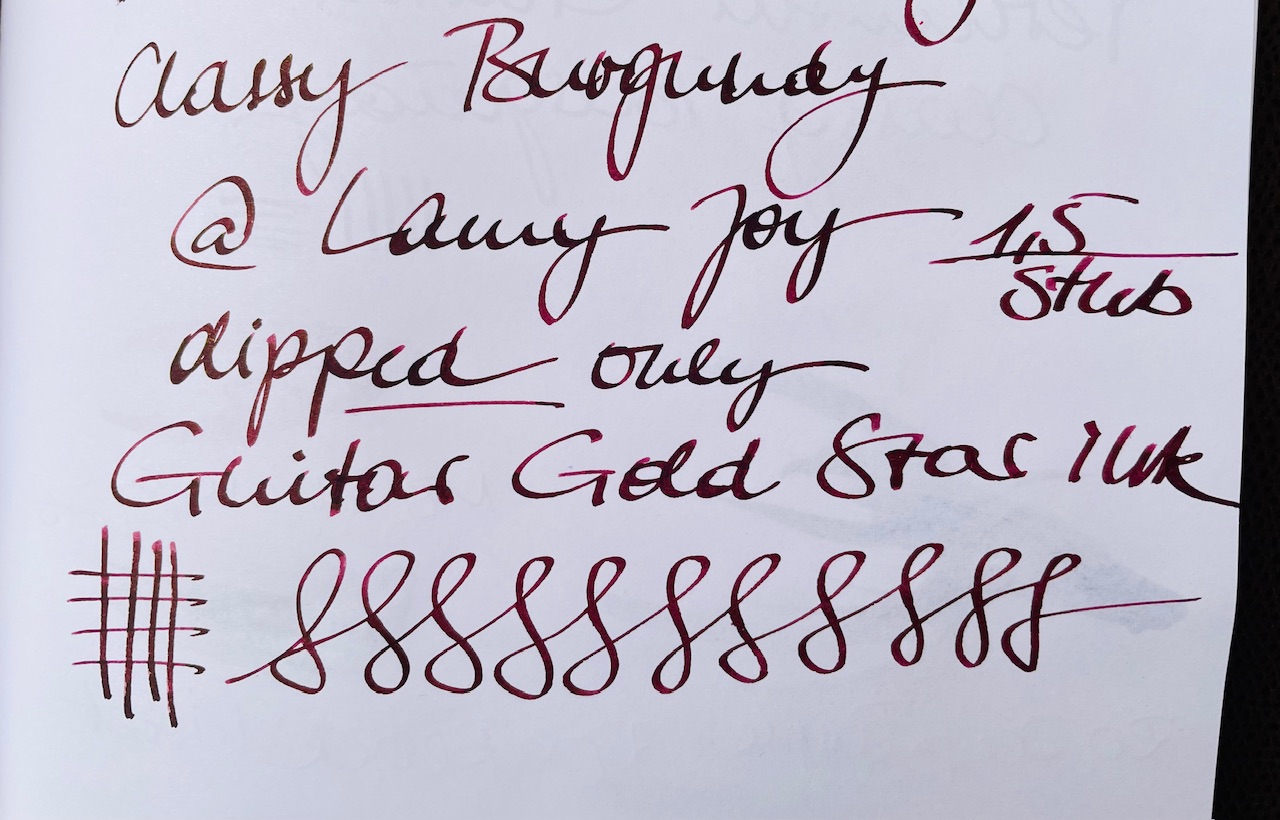 Classy Burgundy
@ Lamy Joy 1,5
Stub
dipped only
Guitar Gold Star ink